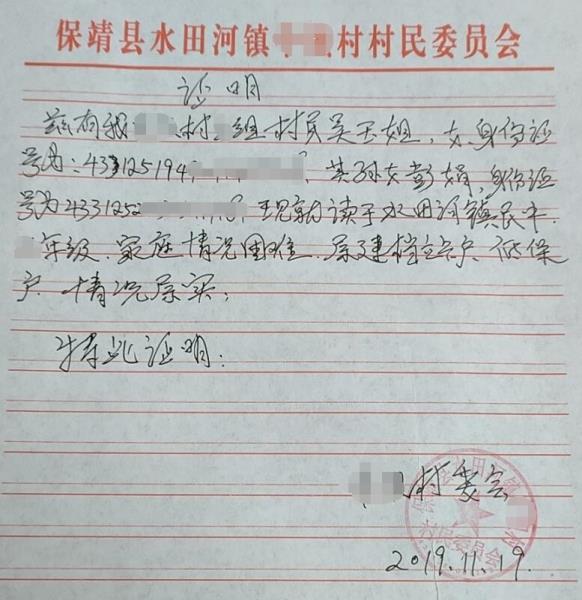 保靖县水田河镇 村村民委员会
证明
兹有我 村 组村民吴玉姐,女,身份证
号为:433125194 其孙女彭娟,身份证
号为433125 现就读于水田河镇民中
年级.家庭情况困难.属建档立卡户 低保
户 情况属实;
特此证明:
村委会
2019.11.19.
村民委员会